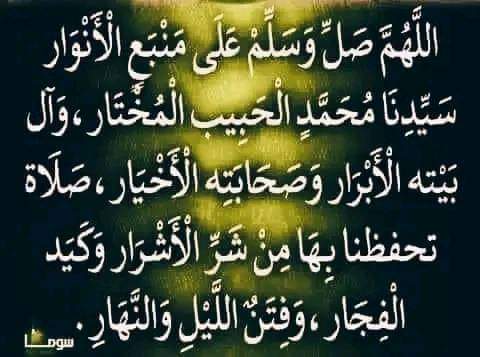 اللَّهُمَّ صَلِّ وَسَلِّمْ عَلَى مَنْبَعِ الْأَنْوَار
سَيِّدِنَا مُحَمَّدٍ الْحَبِيبِ الْمُخْتَار ، وَآل
بَيْته الْأَبْرَار وَصَحَابَتِه الْأَخْيَار ، صَلَاة
تحفظنا بِهَا مِنْ شَرِّ الْأَشْرَار وَكَيَد
الْفِجَار ، وَفِتَنٌ اللَّيْلِ وَالنَّهَارِ .
سومــا